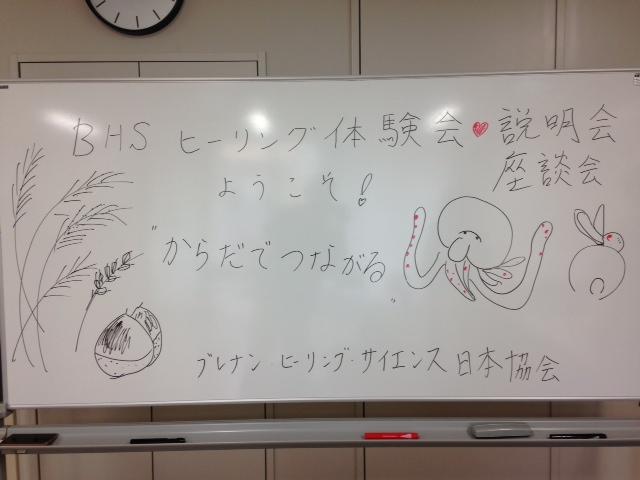 BHS ヒーリング体験会♥説明会
座談会
ようこそ！
"からだでつながる"
ブレナン・ヒーリング・サイエンス日本協会